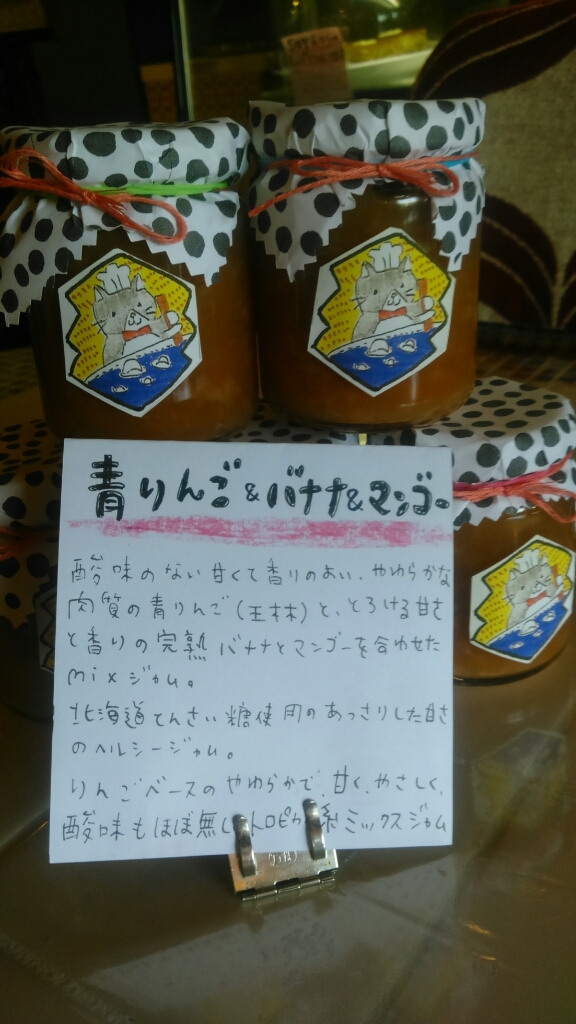 青りんご&バナナ&マンゴー
酸味のない甘くて香りのよい、やわらかな
肉質の青りんご(王林)と、とろける甘さ
と香りの完熟バナナとマンゴーを合わせた
mixジャム。
北海道てんさい糖使用のあっさりした甘さ
のヘルシージャム。
りんごベースのやわらかで、甘く、やさしく、
酸味もほぼ無しトロピカル系ミックスジャム